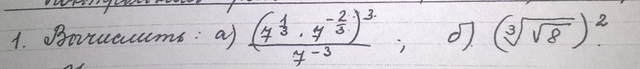 1. Вычислить: а) (7^{1/3} · 7^{-2/3})^3 / 7^{-3} ; б) (∛√8)^2.